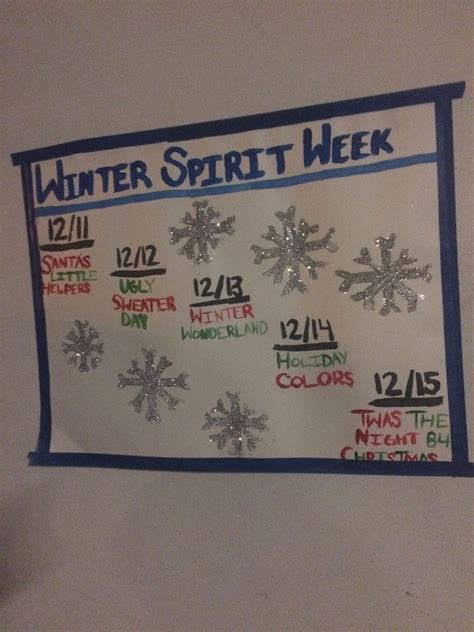 WINTER SPIRIT WEEK
12/11
SANTAS
LITTLE
HELPERS
12/12
UGLY
SWEATER
DAY
12/13
WINTER
WONDERLAND
12/14
HOLIDAY
COLORS
12/15
TWAS THE
NIGHT B4
CHRISTMAS